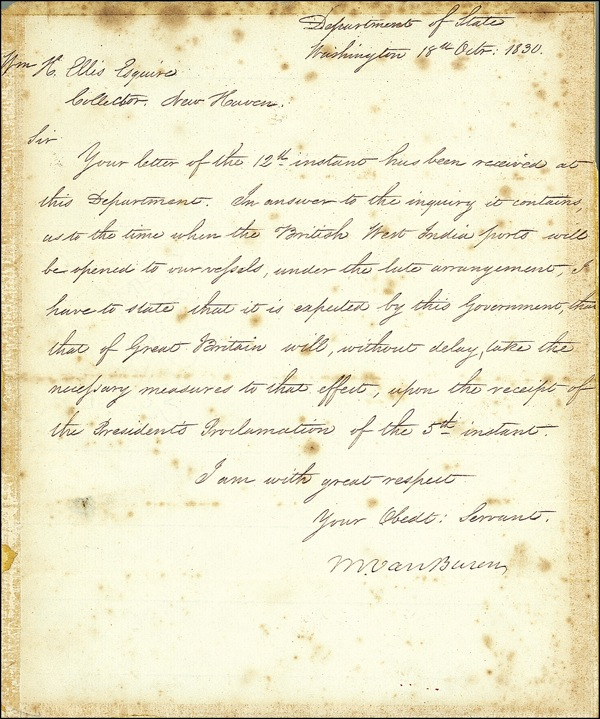 Department of State
Washington 18th Octr: 1830.
Wm H. Ellis Esquire
Collector. New Haven.
Sir
Your letter of the 12th instant has been received at
this Department. In answer to the inquiry it contains,
as to the time when the British West India ports will
be opened to our vessels, under the late arrangement, I
have to state that it is expected by this Government, that
that of Great Britain will, without delay, take the
necessary measures to that effect, upon the receipt of
the President's Proclamation of the 5th instant.
I am with great respect
Your Obedt: Servant.
M. Van Buren